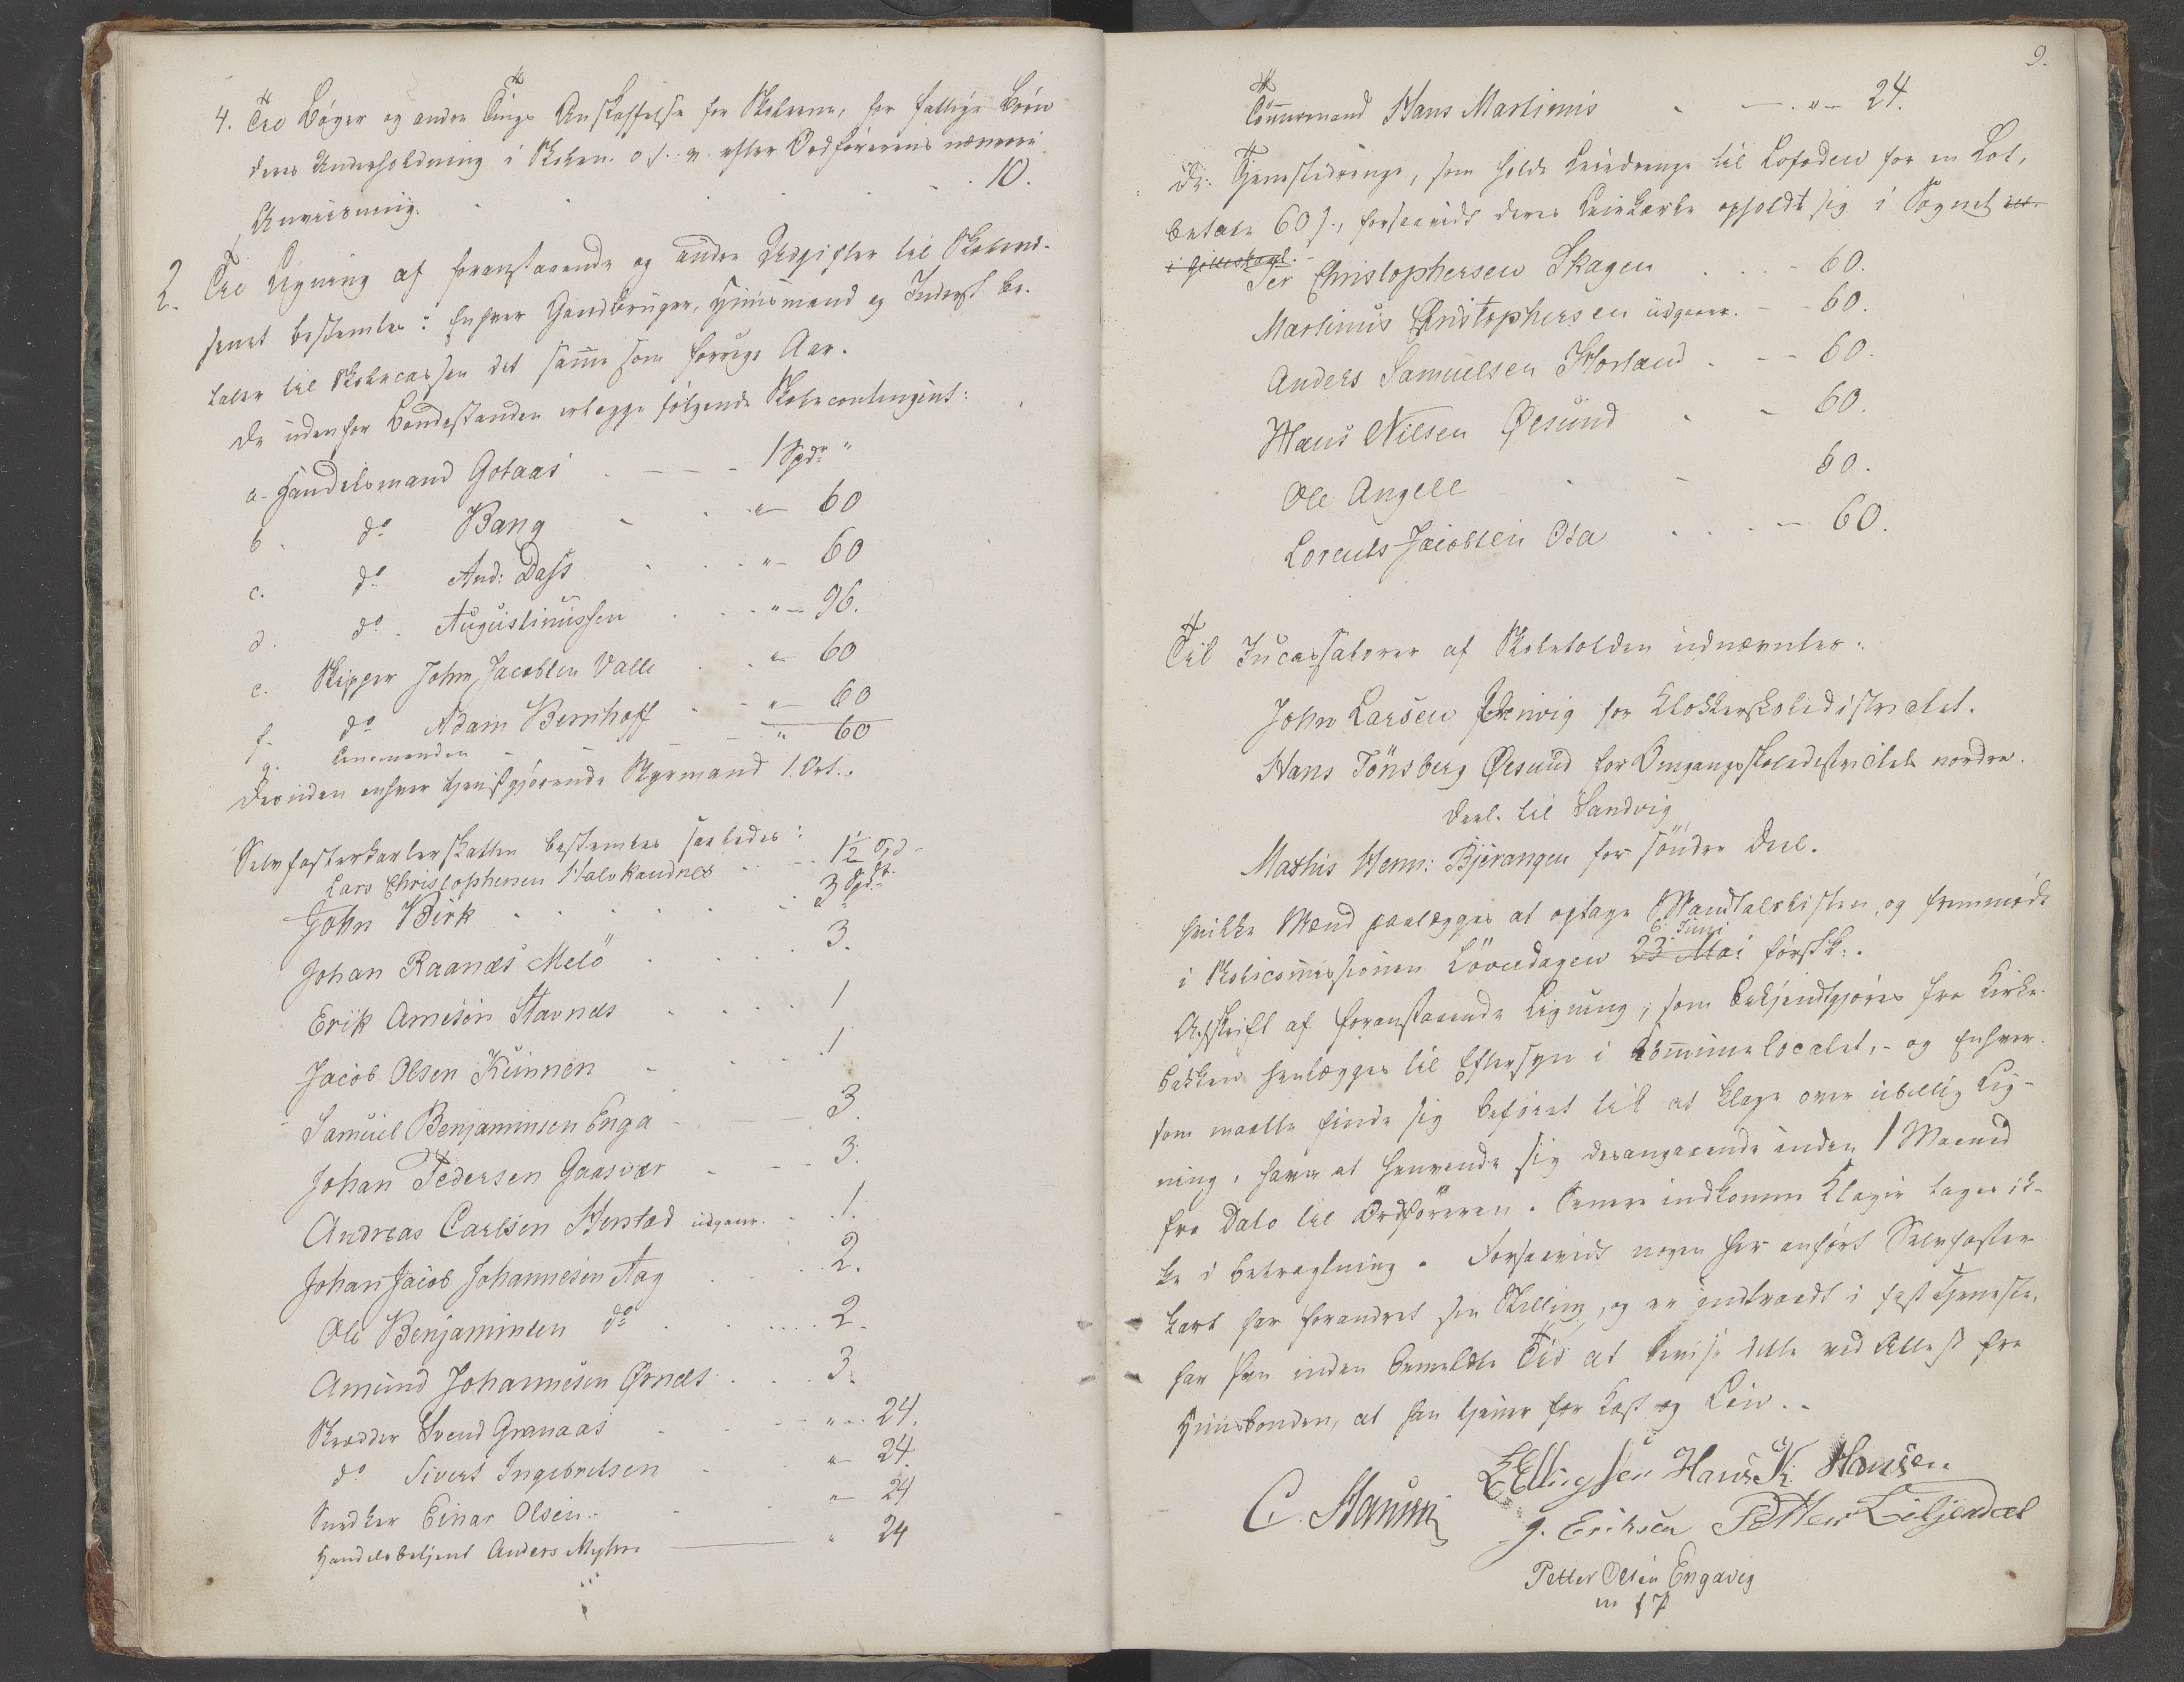 4. Til Bøger og andre Tings Anskaffelse for Skolerne, for fattige Børn
deres Underholdning i Skolen o. s. v. efter Ordførerens nærmere
Anviisning. 10.
2. Til Ligning af foranstaaende og andre Udgifter til Skolevæ-
senet bestemtes: Enhver Gaardbruger, Huusmand og Inderst be-
taler til Skolecassen det samme som forrige Aar.
De udenfor Bondestanden erlægge følgende Skolecontingent:
a. Handelsmand Gotaas 1 Spdr "
b. do Bang " 60
c. do And: Dass " 60
d. do Augustinussen " 96.
e. Skipper John Jacobsen Valle " 60
f. do Adam Bernhoff " 60
g. " 60
Desuden enhver tjenstgjørende Styrmand 1 Ort.
Selvfosterkarlerskatten bestemtes saaledes:
Lars Christophersen 1½ Spd
John Birk 3 Spdr
Johan Raanæs Melö 3.
Erik Arnesen Stavnæs 1
Jacob Olsen Kunnen 1
Samuel Benjaminsen Enga 3.
Johan Pedersen Gaasvær 3.
Andreas Carlsen Herstad udgaar. 1.
Johan Jacob Johannesen Aag 2.
Ole Benjaminsen do 2.
Amund Johannesen Ørnæs 3.
Skrædder Svend Granaas " 24.
do Sivert Ingebretsen " 24.
Snedker Einar Olsen " 24
Handelsbetjent Anders Myhre " 24
9.
Tømmermand Hans Martinus " 24.
De Tjenestedrenge, som holde Leiedrenge til Lofoden for en Lot,
betale 60 s., forsaavidt deres Leiekarle opholdt sig i Sognet
Per Christophersen Skagen 60.
Martinus Christophersen udgaar. 60.
Anders Samuelsen Storland 60.
Hans Nilsen Øesund 60.
Ole Angell 60.
Lorents Jacobsen Osa 60.
Til Incassatorer af Skoletolden udnævntes:
John Larsen for Klokkerskoledistrictet.
Hans Tönsberg Øesund for Omgangsskoledistrictets nordre
Deel til Sandvig
Mathis Henn: Bjerangen for søndre Deel.
hvilke Mænd paalægges at optage Mandtalslisten, og fremmøde
6 Juni
i Skolecommissionen Löverdagen 23 Mai førstk:.
Afskrift af foranstaaende Ligning, som bekjendtgjøres fra Kirke-
bakken henlægges til Eftersyn i Communelocalet, - og Enhver
som maatte finde sig beføiet til at klage over ubillig Lig-
ning, haver at henvende sig desangaaende inden 1 Maaned
fra Dato til Ordføreren. Senere indkomne Klager tages ik-
ke i betragtning. Forsaavidt nogen her anført Selvfoster
karl har forandret sin Stilling, og er indtraadt i fast Tjeneste,
har han inden bemeldte Tid at bevise dette ved Attest fra
Huusbonden, at han tjener for Kost og Løn.
E Ellingsen Hans K. Hansen
C. Hansen
J. Eriksen Petter Liljendal
Petter Olsen Engavig
m f P